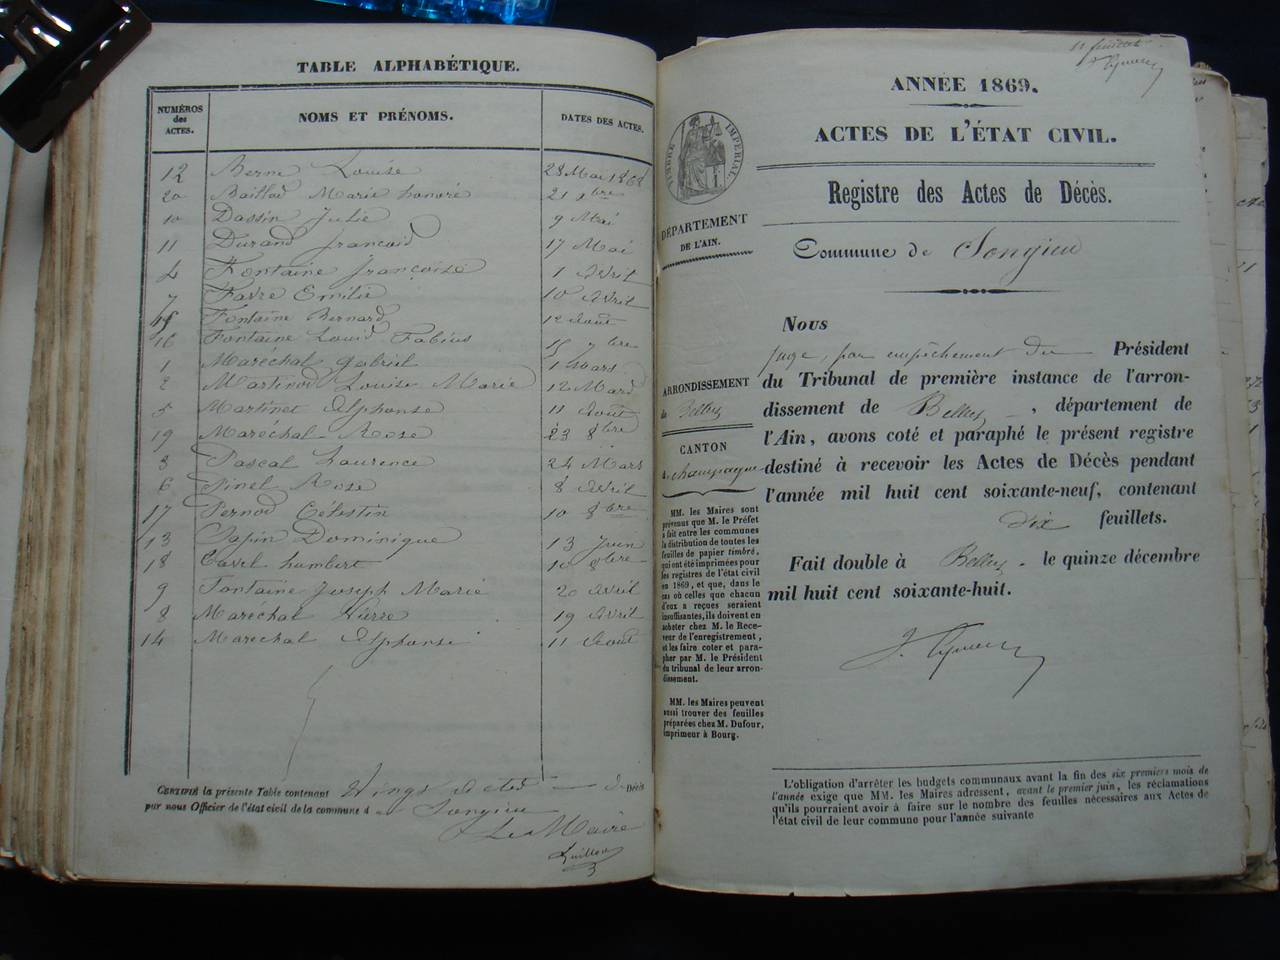 TABLE ALPHABÉTIQUE.
NUMÉROS des ACTES. NOMS ET PRÉNOMS. DATES DES ACTES.
12 Berne Louise 28 Mai 1868
20 Baillod Marie honoré 21 9bre
10 Dassin Julie 9 Mai
11 Durand françois 17 Mai
4 Fontaine françoise 1 avril
7 Favre Emilie 10 avril
15 Fontaine Bernard 12 août
16 Fontaine Louis Fabius 15 7bre
1 Maréchal Gabriel 1 Mars
2 Martinod Louise Marie 12 Mars
5 Martinet Alphonse 11 août
19 Maréchal Rose 23 8bre
3 Pascal Laurence 24 Mars
6 Pinel Rose 8 avril
17 Pernod Célestin 10 8bre
13 Sapin Dominique 13 Juin
18 Cavel humbert 10 8bre
9 Fontaine Joseph Marie 20 avril
8 Maréchal Pierre 19 avril
14 Marechal Alphonse 11 août
CERTIFIÉ la présente Table contenant Vingt actes de Décès
par nous Officier de l'état civil de la commune d Songieu
Le Maire
Guillon
ANNÉE 1869.
ACTES DE L'ÉTAT CIVIL.
TIMBRE IMPÉRIAL.
Registre des Actes de Décès.
DÉPARTEMENT
DE L'AIN.
Commune de Songieu
ARRONDISSEMENT
de Belley
CANTON
de Champagne
MM. les Maires sont
prévenus que M. le Préfet
a fait entre les communes
la distribution de toutes les
feuilles de papier timbré,
qui ont été imprimées pour
les registres de l'état civil
en 1869, et que, dans le
cas où celles que chacun
d'eux a reçues seraient
insuffisantes, ils doivent en
acheter chez M. le Rece-
veur de l'enregistrement,
et les faire coter et para-
pher par M. le Président
du tribunal de leur arron-
dissement.
MM. les Maires peuvent
aussi trouver des feuilles
préparées chez M. Dufour,
imprimeur à Bourg.
Nous
Juge, par empêchement du Président
du Tribunal de première instance de l'arron-
dissement de Belley, département de
l'Ain, avons coté et paraphé le présent registre
destiné à recevoir les Actes de Décès pendant
l'année mil huit cent soixante-neuf, contenant
dix feuillets.
Fait double à Belley le quinze décembre
mil huit cent soixante-huit.
L'obligation d'arrêter les budgets communaux avant la fin des six premiers mois de
l'année exige que MM. les Maires adressent, avant le premier juin, les réclamations
qu'ils pourraient avoir à faire sur le nombre des feuilles nécessaires aux Actes de
l'état civil de leur commune pour l'année suivante